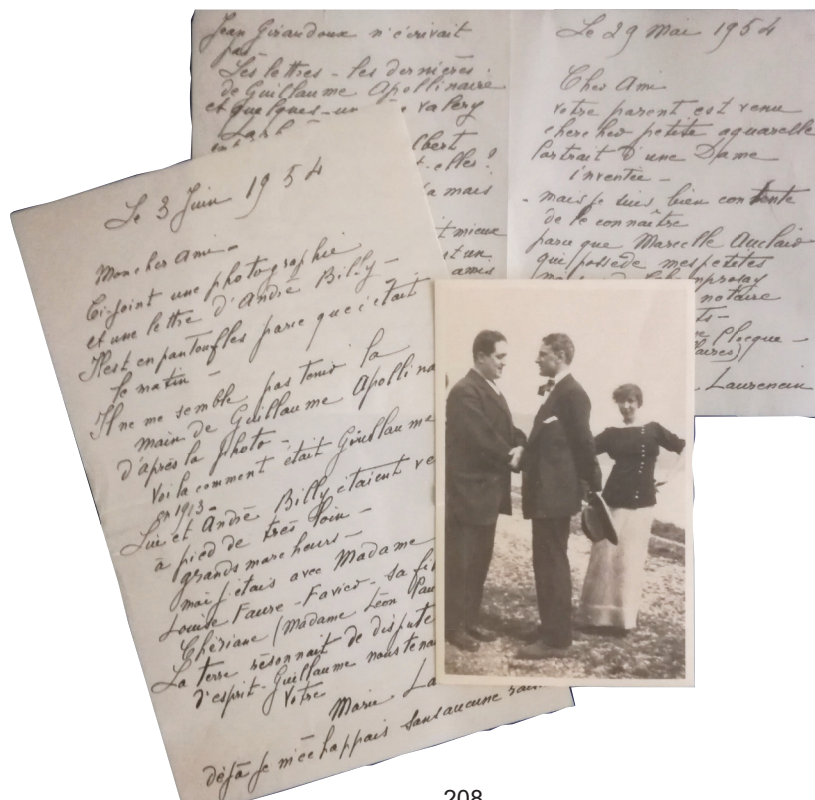 Jean Giraudoux n'écrivait
pas
Les lettres - les dernières
de Guillaume Apollinaire
et quelques-un Valéry
Larb
lbert
t-elles?
a mais
t mieux
et un
amis
Le 29 Mai 1954
Cher Ami
votre parent est venu
chercher petite aquarelle
Portrait d'une Dame
inventée -
- mais je suis bien contente
de le connaître
parce que Marcelle Auclair
qui possède mes petites
notaire
ts -
Plocque -
aires)
Laurencin
Le 3 Juin 1954
Mon cher Ami -
Ci-joint une photographie
et une lettre d'André Billy -
Il est en pantoufles parce que c'était
le matin -
Il ne me semble pas tenir la
main de Guillaume Apollina
d'après la photo -
Voilà comment était Guillaume
en 1913 -
Lui et André Billy étaient ve
à pied de très loin -
grands marcheurs -
moi j'étais avec Madame
Louise Faure-Favier - sa fi
Chériane (Madame Léon
La terre résonnait de dispute
d'esprit - Guillaume nous tena
Votre
Marie La
déjà je m'échappais sans aucune
208